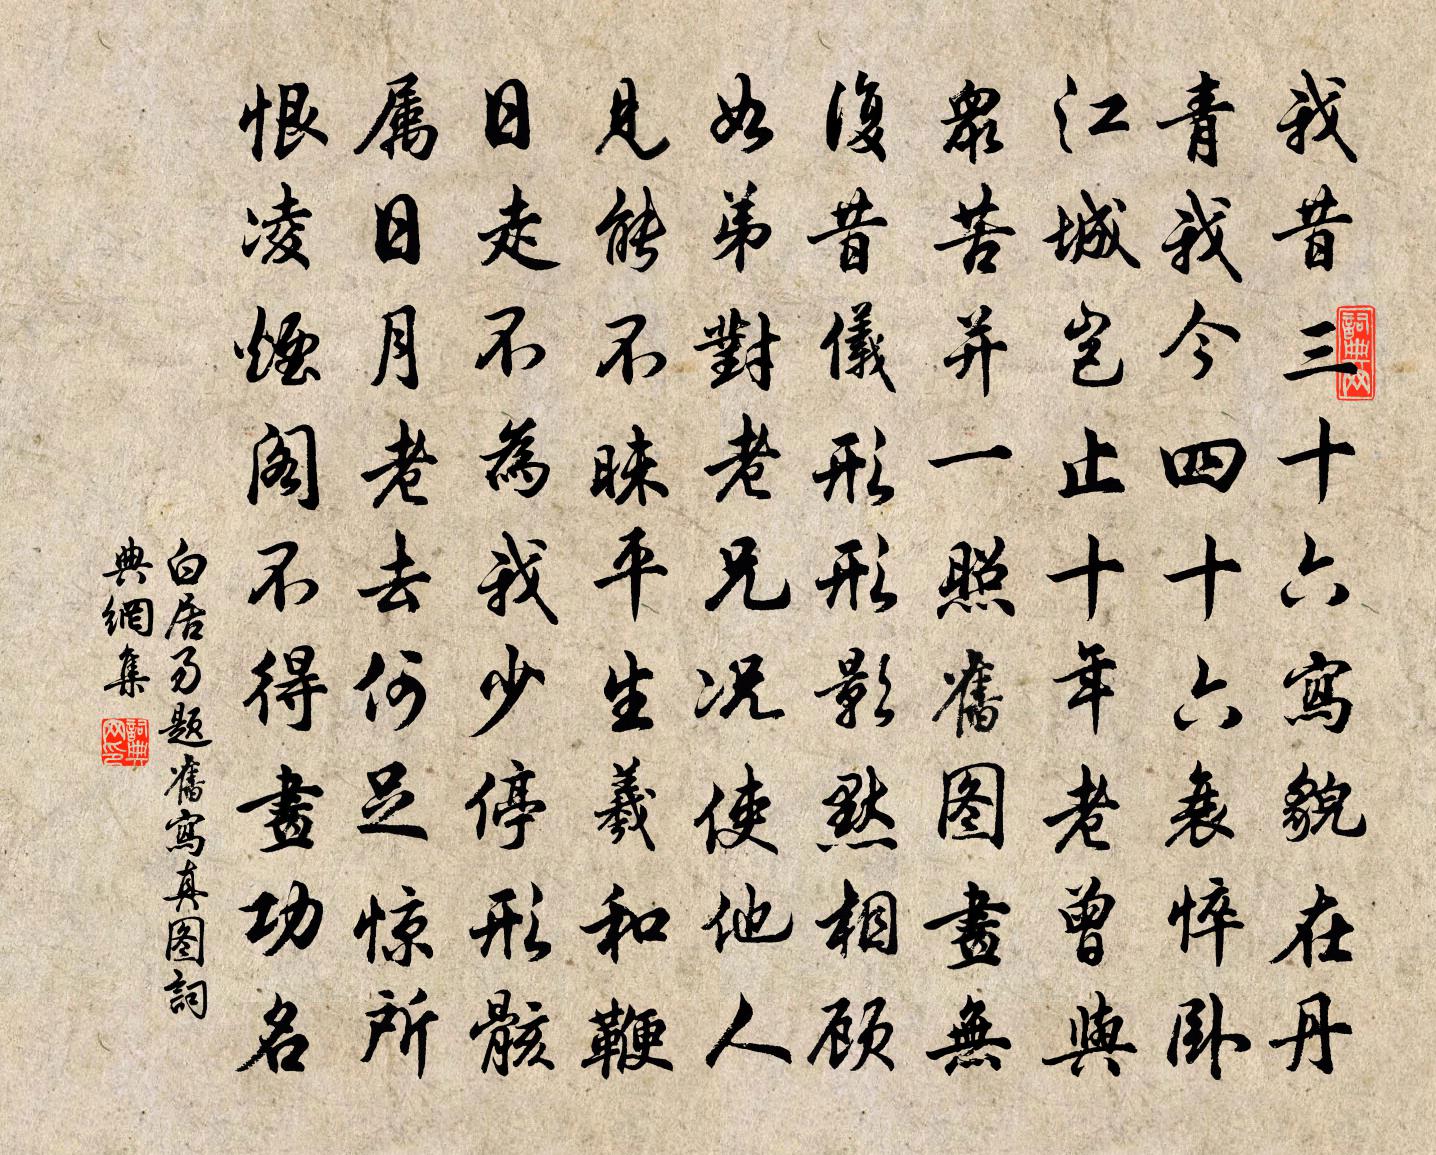 我昔三十六寫貌在丹
青我今四十六衰悴卧
江城豈止十年老曾與
衆苦并一照舊图畫無
復昔儀形形影默相顾
如弟對老兄况使他人
見能不昧平生羲和鞭
日走不為我少停形骸
属日月老去何足惊所
恨凌煙阁不得畫功名
白居易题舊寫真图詞
典網集
詞典网
詞典网印